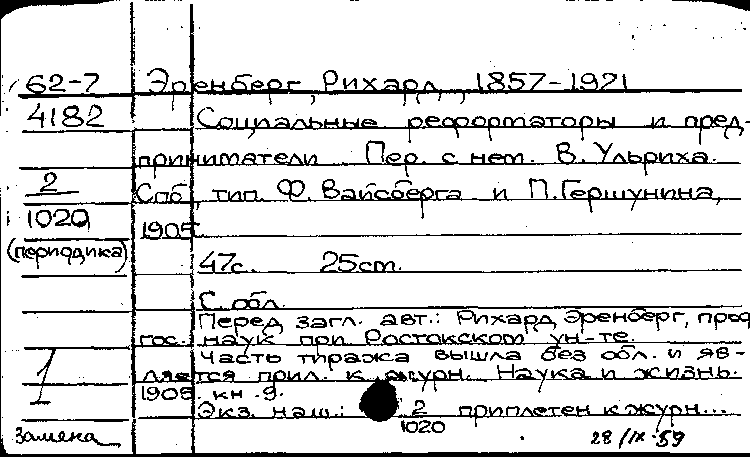 62-7 Эренберг, Рихард, 1857-1921
4182 Социальные реформаторы и пред-
приниматели Пер. с нем. В. Ульриха.
2 Спб, тип. Ф. Вайсберга и П. Гершунина,
1020 1905.
(периодика)
47с. 25cm.
С обл.
Перед загл. авт.: Рихард Эренберг, проф
гос. наук при Ростокском ун-те.
Часть тиража вышла без обл. и яв-
ляется прил. к журн. Наука и жизнь.
1 1905. кн. 9.
Экз. наш.: 2 приплетен к журн...
1020
Замена 28/IX-59